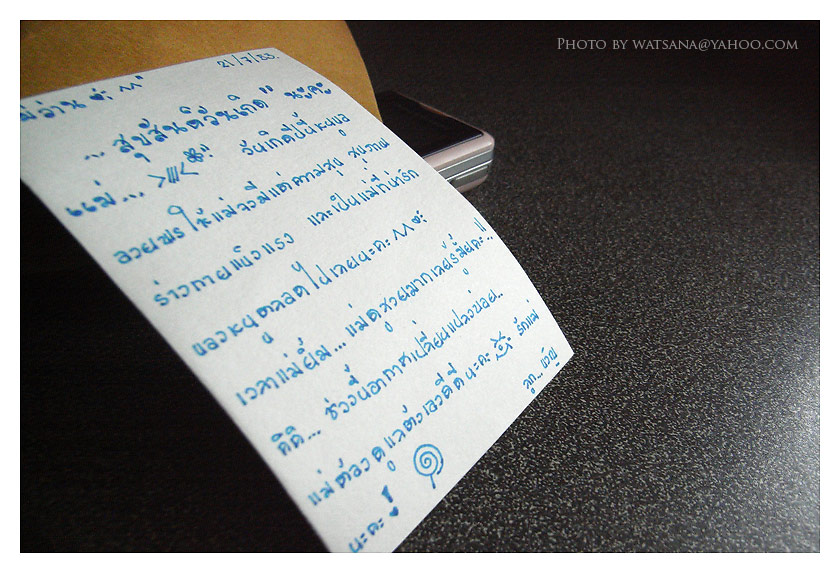 PHOTO BY WATSANA@YAHOO.COM
21/7/53.
... สุขสันติ์วันเกิด" นะคะ
แม่... >///< วันเกิดปีนี้หนูขอ
อวยพร ให้แม่จงมีแต่ความสุข สุขภาพ
ร่างกายแข็งแรง และเป็นแม่ที่น่ารัก
ของหนูตลอดไปเลยนะคะ ^^
เวลาแม่ยิ้ม... แม่ดูสวยมากเลยรู้มั้ยคะ..!!
คิคิ... ช่วงนี้อากาศเปลี่ยนแปลงบ่อย..
แม่ต้องดูแลตัวเองดีดีนะคะ รักแม่
นะคะ! ลูก...